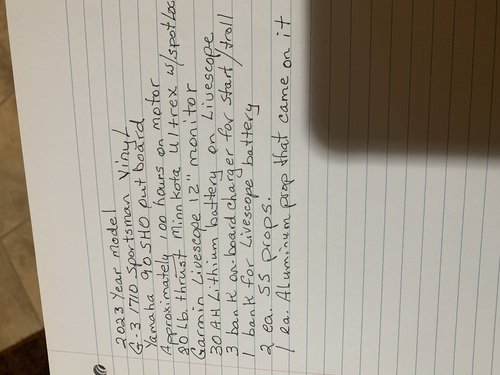 2023 Year model
G-3 1710 Sportsman Vinyl
Yamaha 90 SHO outboard
Approximately 100 hours on motor
80 Lb. thrust Minn Kota Ultrex w/spotloc
Garmin Livescope 12" monitor
30 AH Lithium battery on Livescope
3 bank on-board charger for start/troll
1 bank for Livescope battery
2 ea. SS props.
1 ea. Aluminum prop that came on it